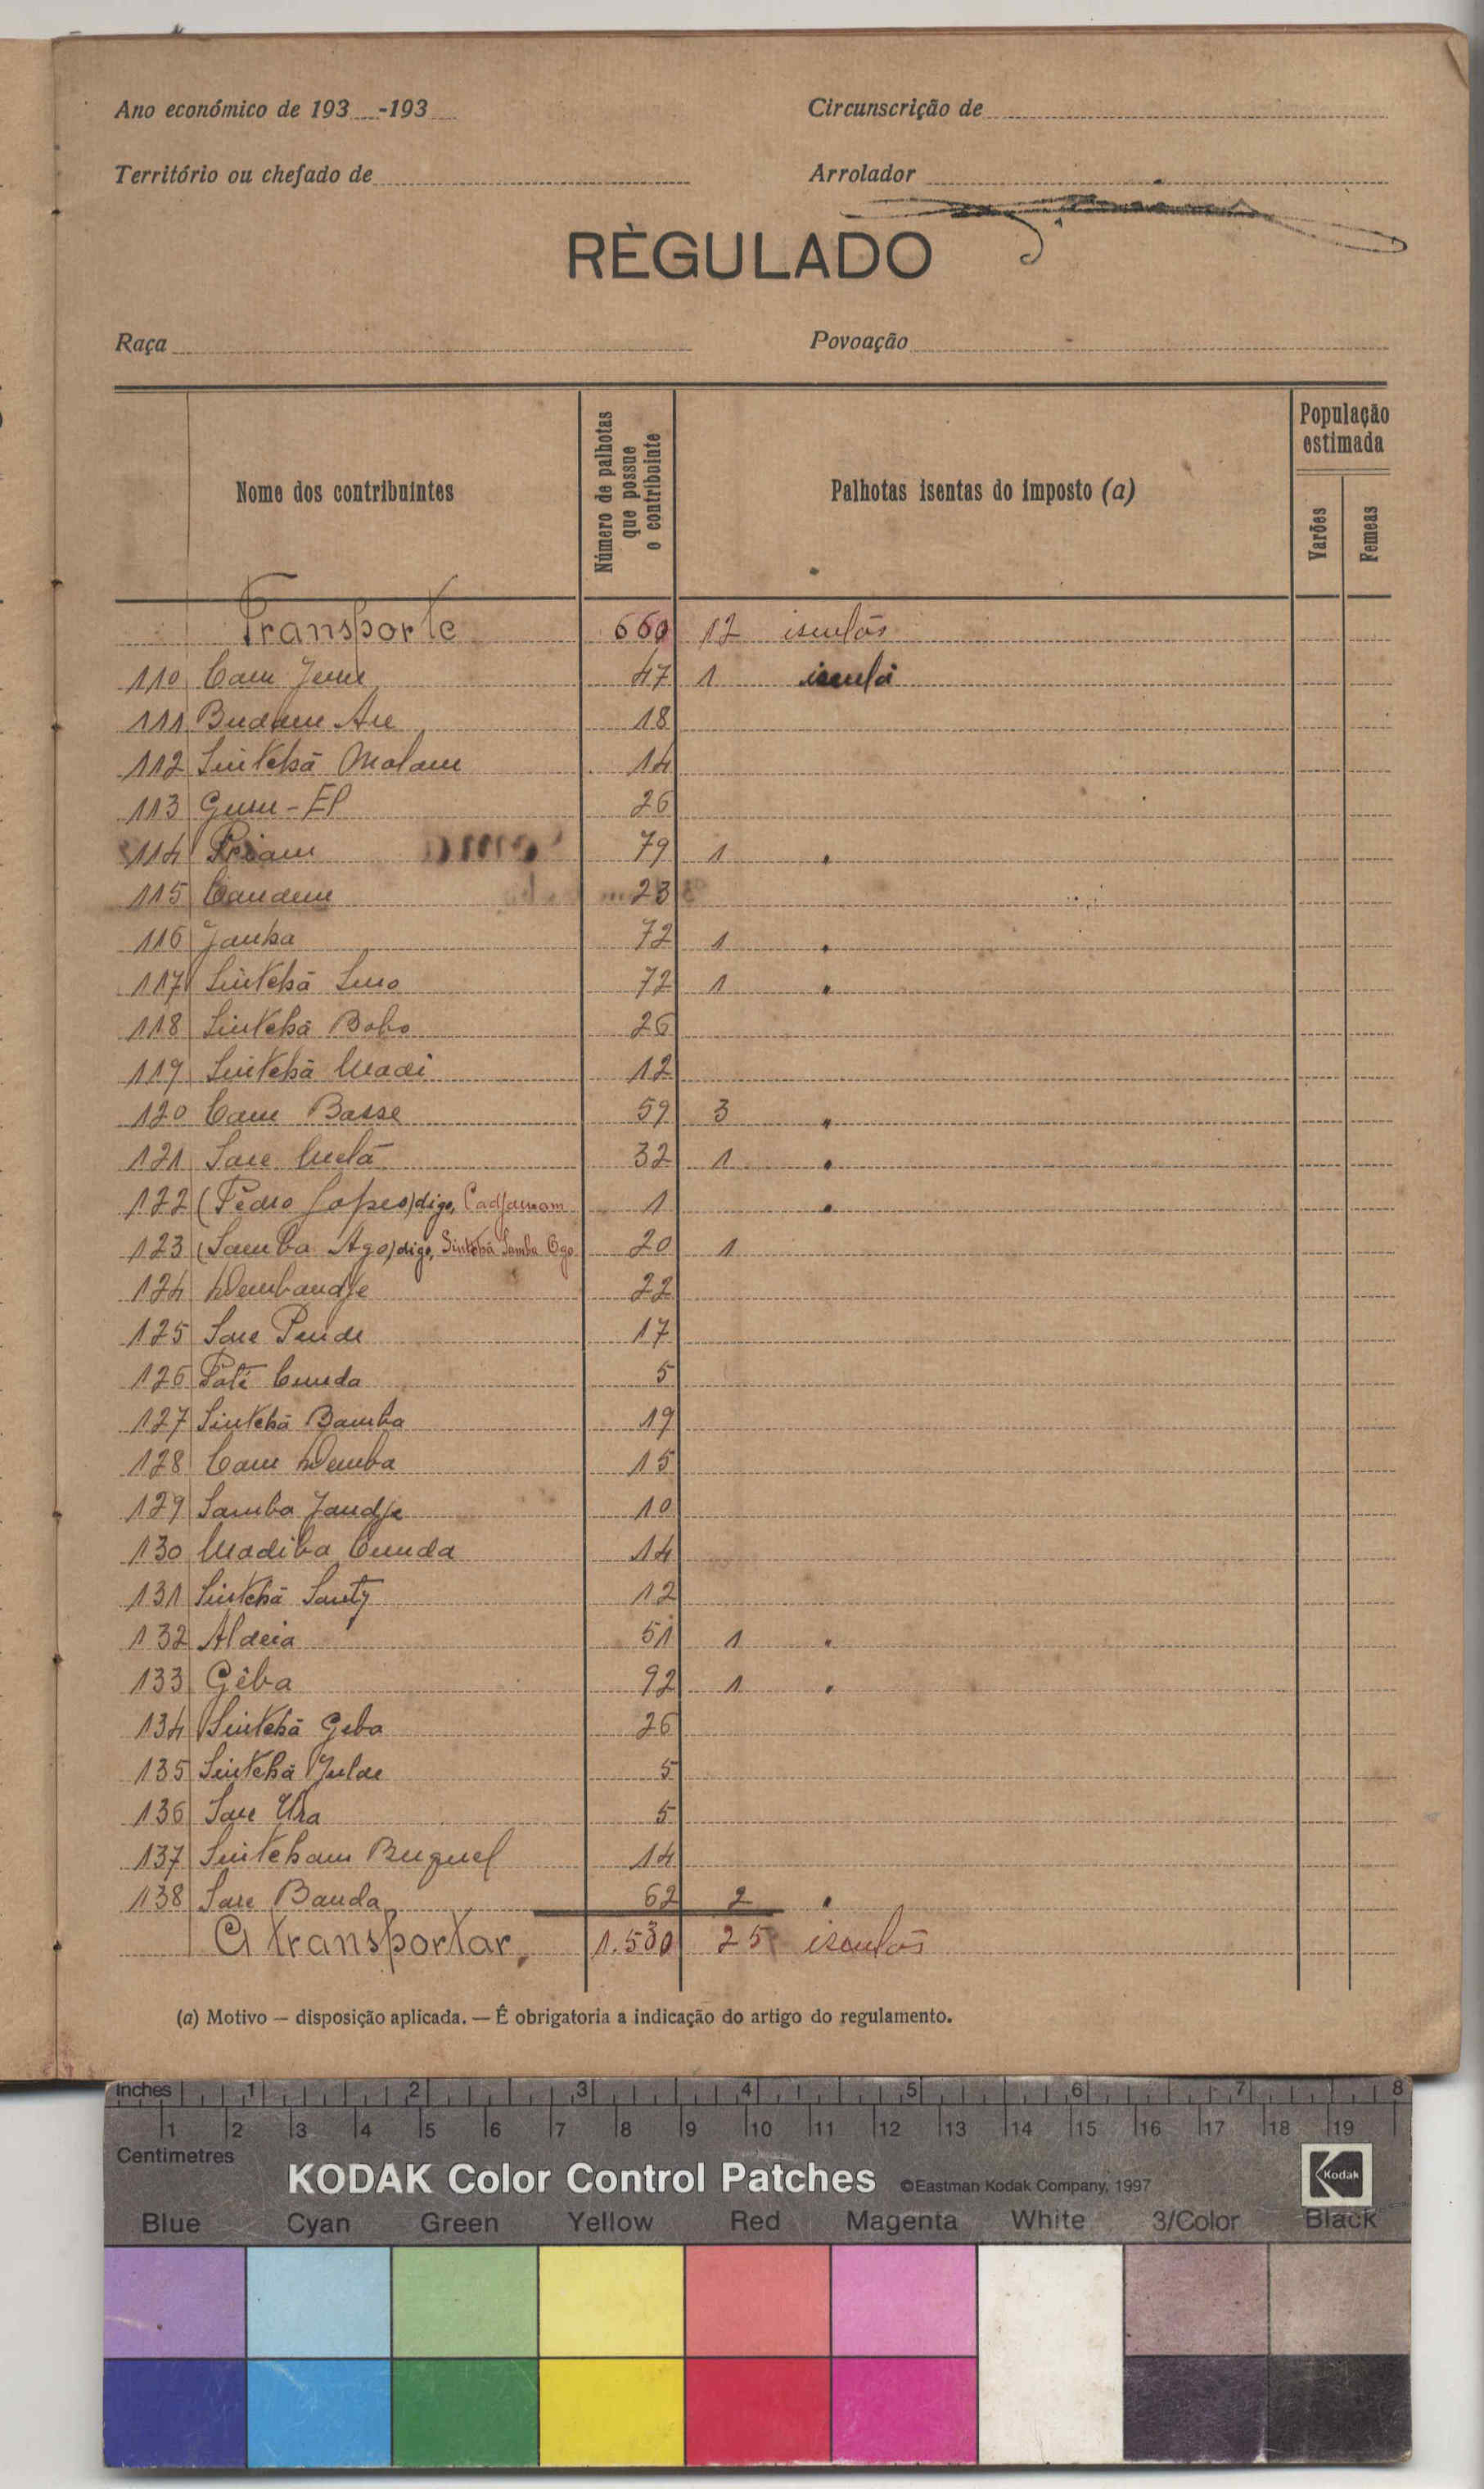 Ano económico de 193 -193
Circunscrição de
Território ou chefado de
Arrolador
RÈGULADO
Raça
Povoação
Nome dos contribuintes
Número de palhotas que possue o contribuinte
Palhotas isentas do imposto (a)
População estimada
Varões
Femeas
Transporte 660 12 isentas
110 Cam Jeme 47 1 isenta
111 18
112 Sintchã Malam 14
113 26
114 79 1 "
115 23
116 Janha 72 1 "
117 Sintchã 72 1 "
118 Sintchã Bobo 26
119 Sintchã Madi 12
120 Cam Basse 59 3 "
121 Sare 32 1 "
122 (Pedro Lopes) digo, 1 "
123 (Samba Ago) digo, Sintchã Samba Ogo 20 1
124 Dembandje 22
125 Sare Pende 17
126 Paté Cunda 5
127 Sintchã Bamba 19
128 Cam Demba 15
129 Samba Jandje 10
130 Madiba Cunda 14
131 Sintchã Santy 12
132 Aldeia 51 1 "
133 Gêba 92 1 "
134 Sintchã Geba 26
135 Sintchã Julde 5
136 Sare Ura 5
137 Sintcham Buguel 14
138 Sare Banda 62 2 "
A transportar, 1.530 25 isentas
(a) Motivo — disposição aplicada. — É obrigatoria a indicação do artigo do regulamento.
Inches 1 2 3 4 5 6 7 8
1 2 3 4 5 6 7 8 9 10 11 12 13 14 15 16 17 18 19
Centimetres
KODAK Color Control Patches ©Eastman Kodak Company, 1997 Kodak
Blue Cyan Green Yellow Red Magenta White 3/Color Black